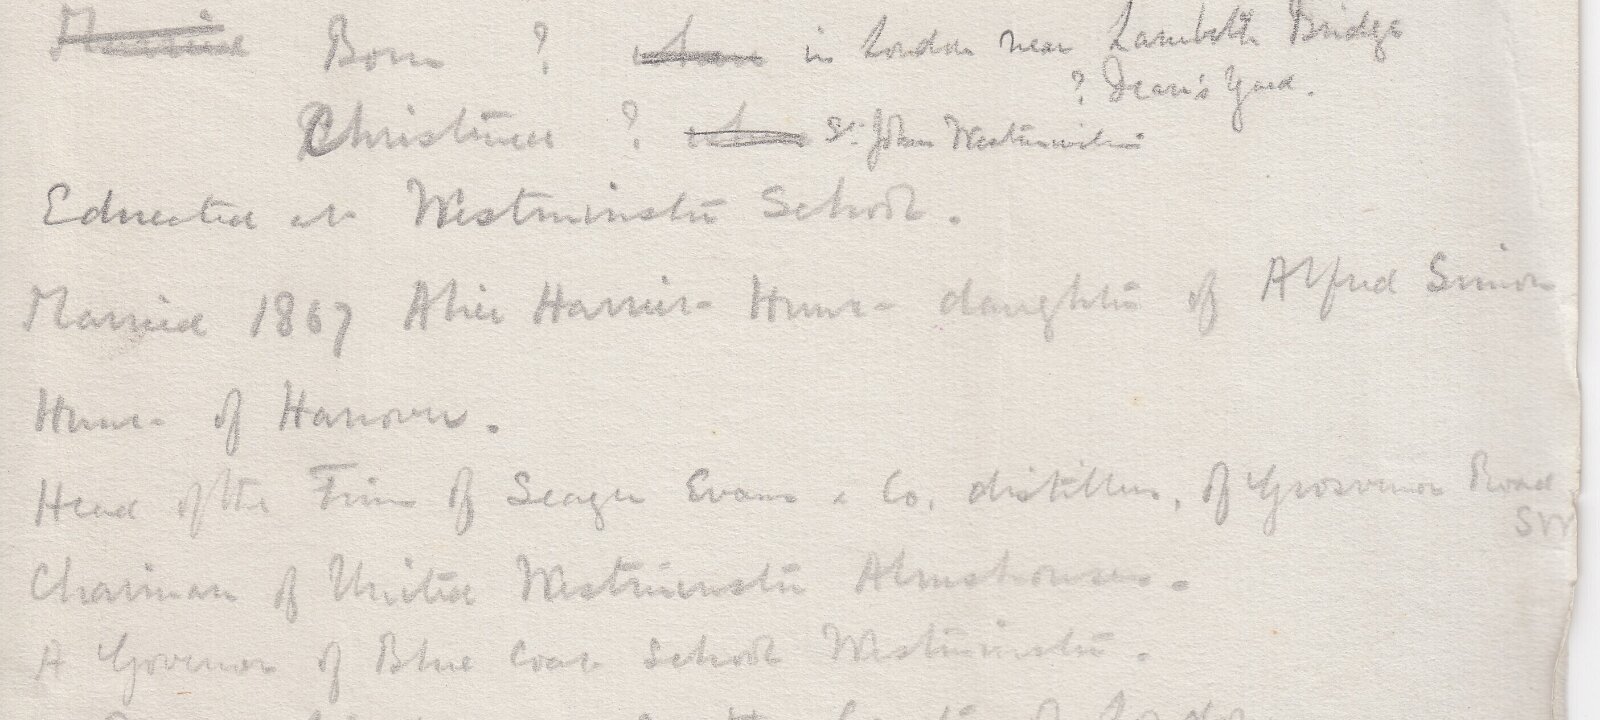 Born ? in London near Lambeth Bridge
? Dean's Yard.
Christened ? St. John Westminster
Educated at Westminster School.
Married 1867 Alice Harriet Hunt daughter of Alfred Simon
Hunt of Hanover.
Head of the Firm of Seager Evans & Co, distillers, of Grosvenor Road
SW
Chairman of United Westminster Almshouses.
A Governor of Blue Coat School Westminster.